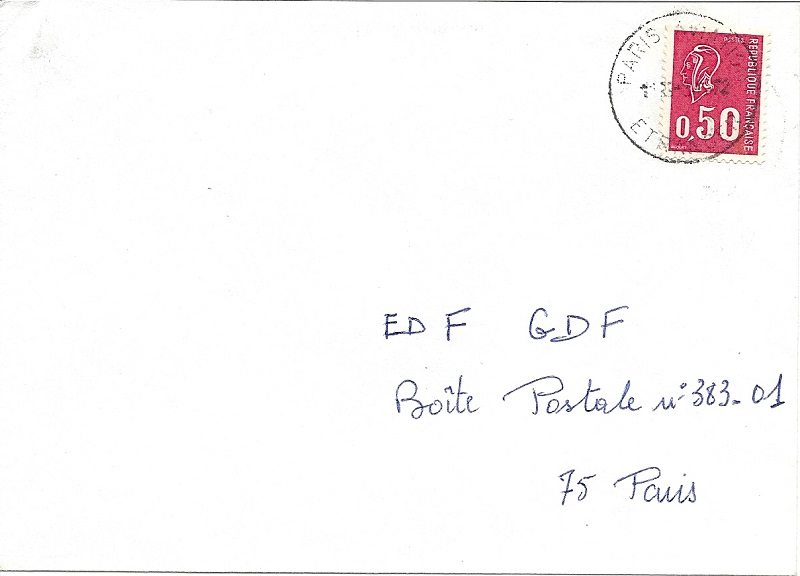 PARIS
POSTES
REPUBLIQUE FRANÇAISE
0,50
72
EDF GDF
Boîte Postale n° 383-01
75 Paris